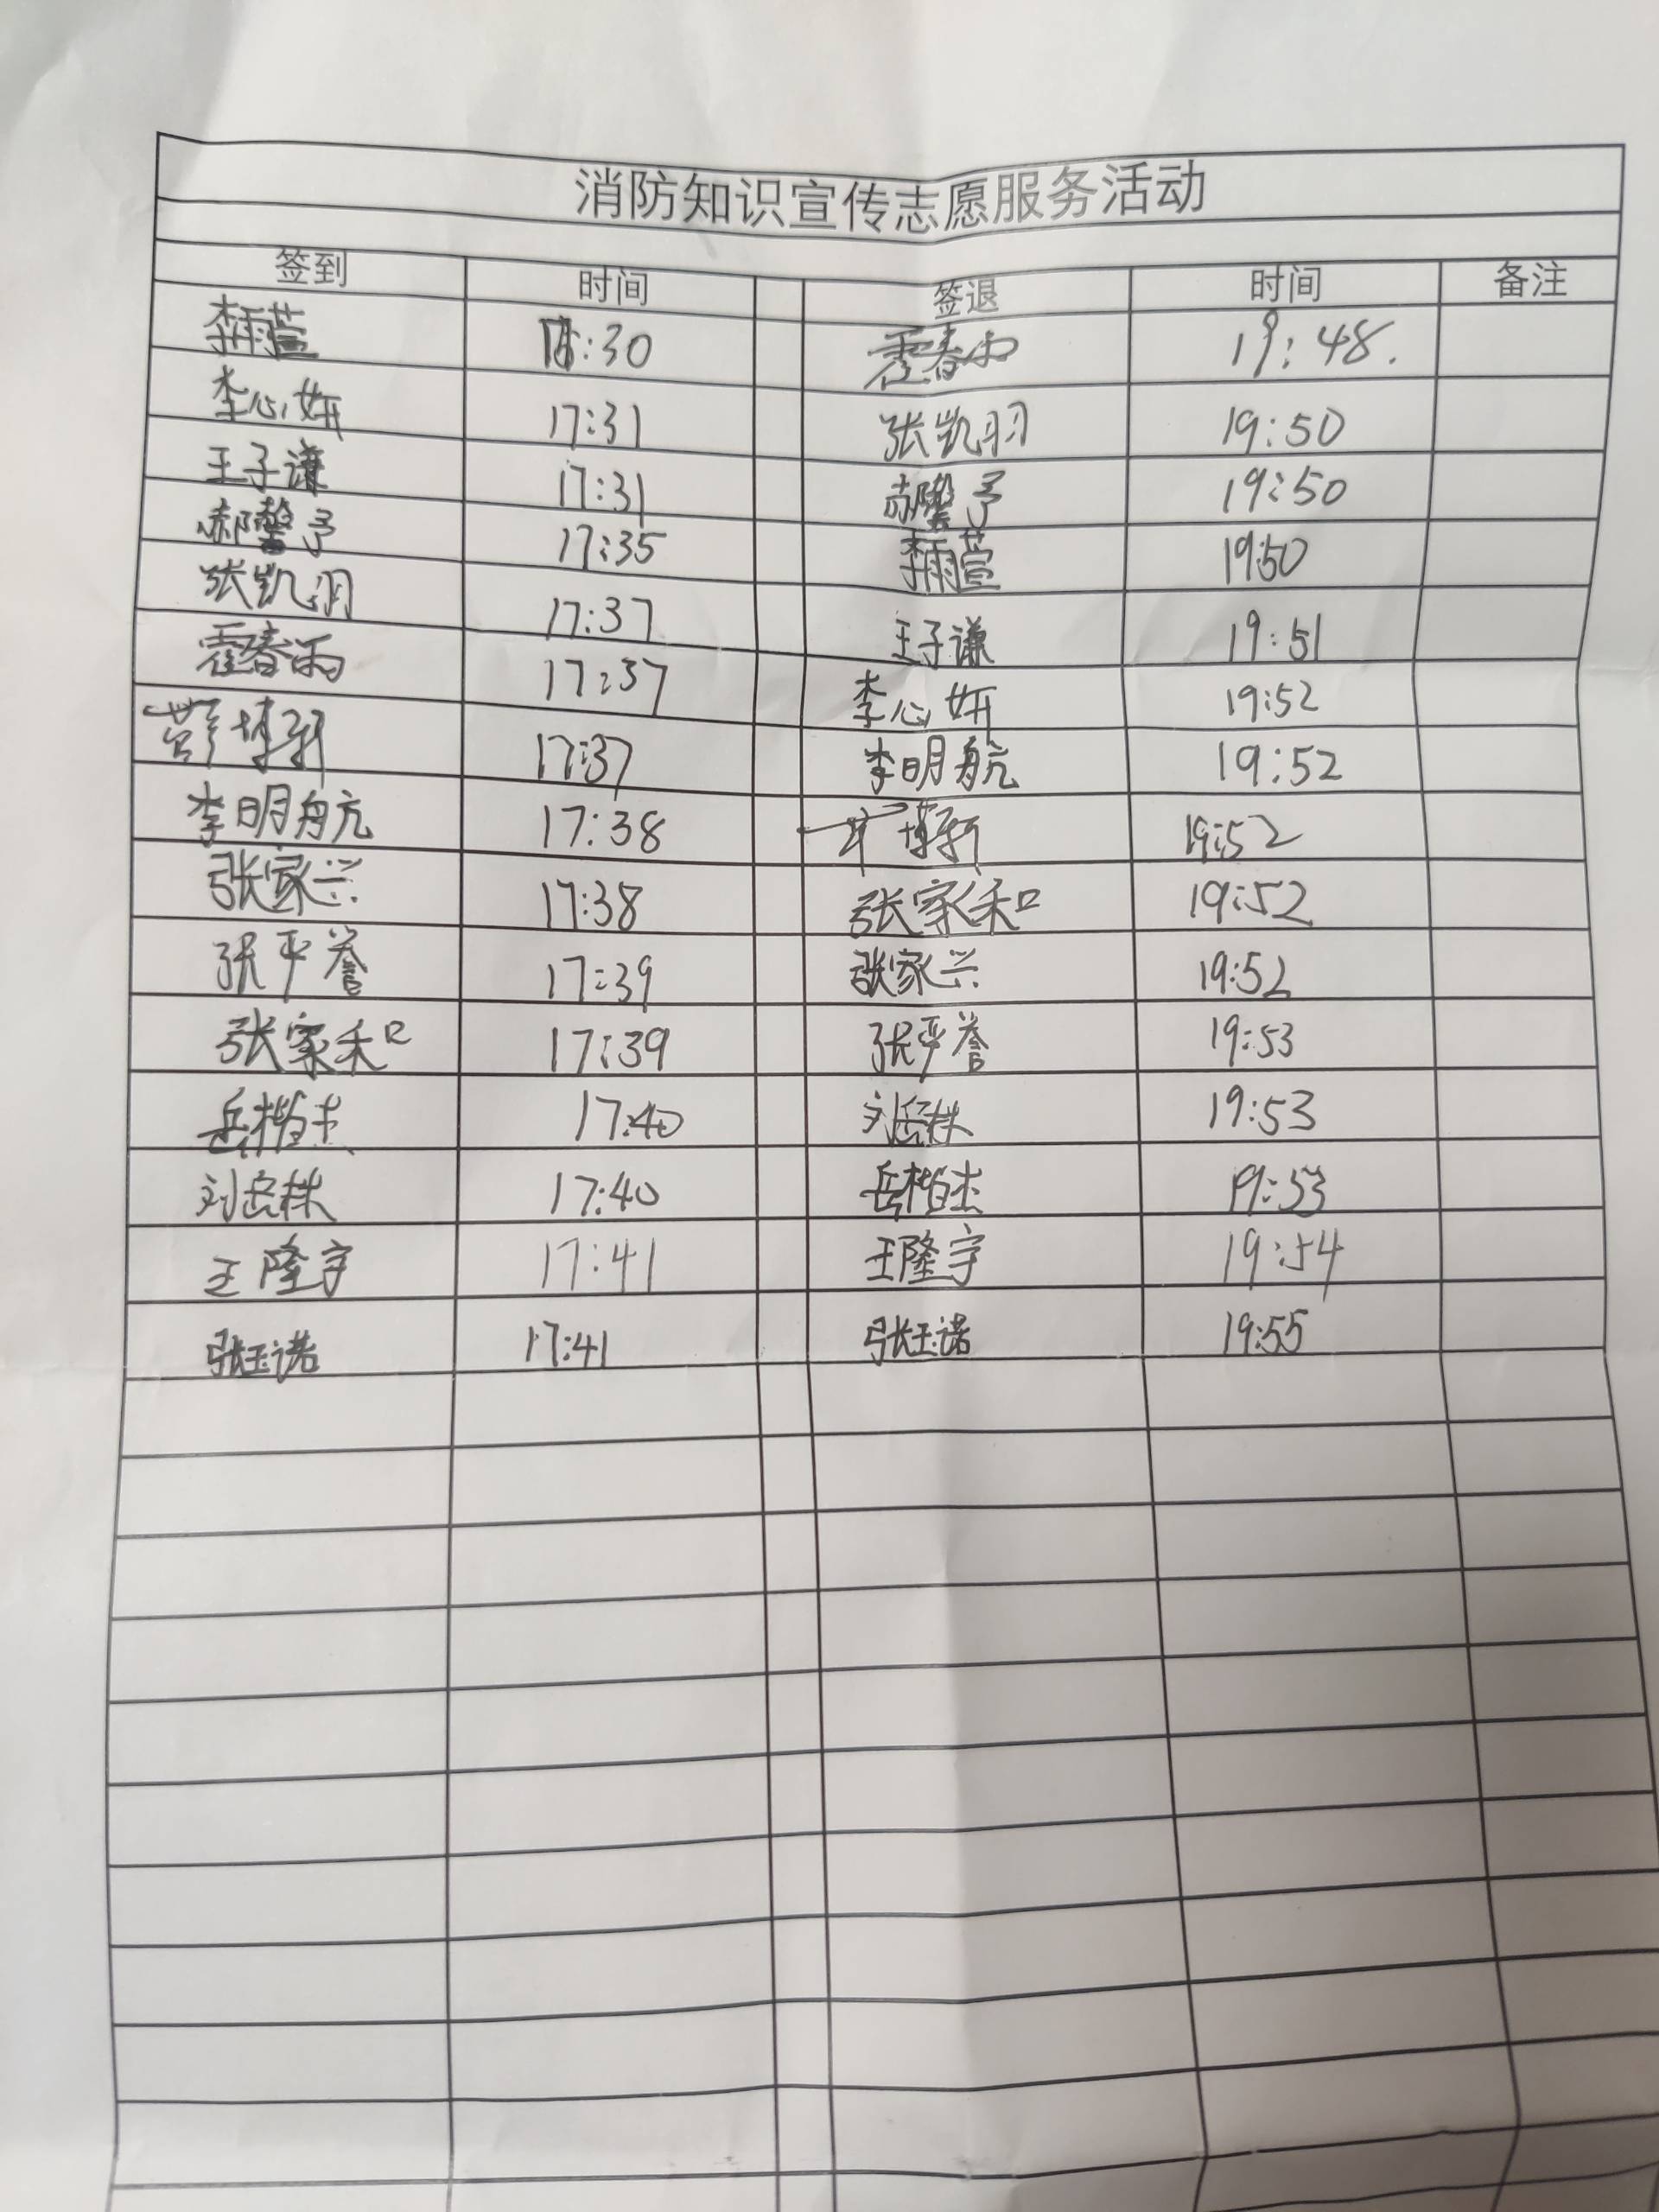 消防知识宣传志愿服务活动
签到 时间 签退 时间 备注
李雨萱 :30 霍春雨 19:48.
李心妍 17:31 张凯羽 19:50
王子谦 17:31 郝馨予 19:50
郝馨予 17:35 李雨萱 19:50
张凯羽 17:37 王子谦 19:51
霍春雨 17:37 李心妍 19:52
博轩 17:37 李明航 19:52
李明航 17:38 博轩 19:52
张家兴 17:38 张家和 19:52
张平誉 17:39 张家兴 19:52
张家和 17:39 张平誉 19:53
岳楷杰 17:40 刘岳林 19:53
刘岳林 17:40 岳楷杰 19:53
王隆宇 17:41 王隆宇 19:54
张玉诺 17:41 张玉诺 19:55